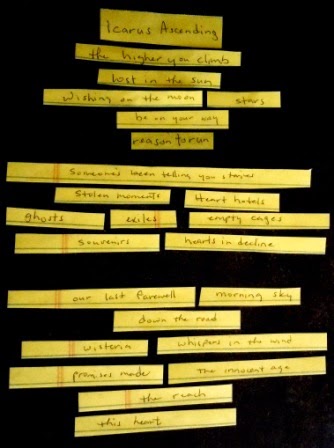 Icarus Ascending
the higher you climb
lost in the sun
wishing on the moon stars
be on your way
reason to run
someone's been telling you stories
Stolen moments Heart hotels
ghosts exiles empty cages
souvenirs hearts in decline
our last farewell morning sky
down the road
wisteria whispers in the wind
promises made the innocent age
the reach
this heart